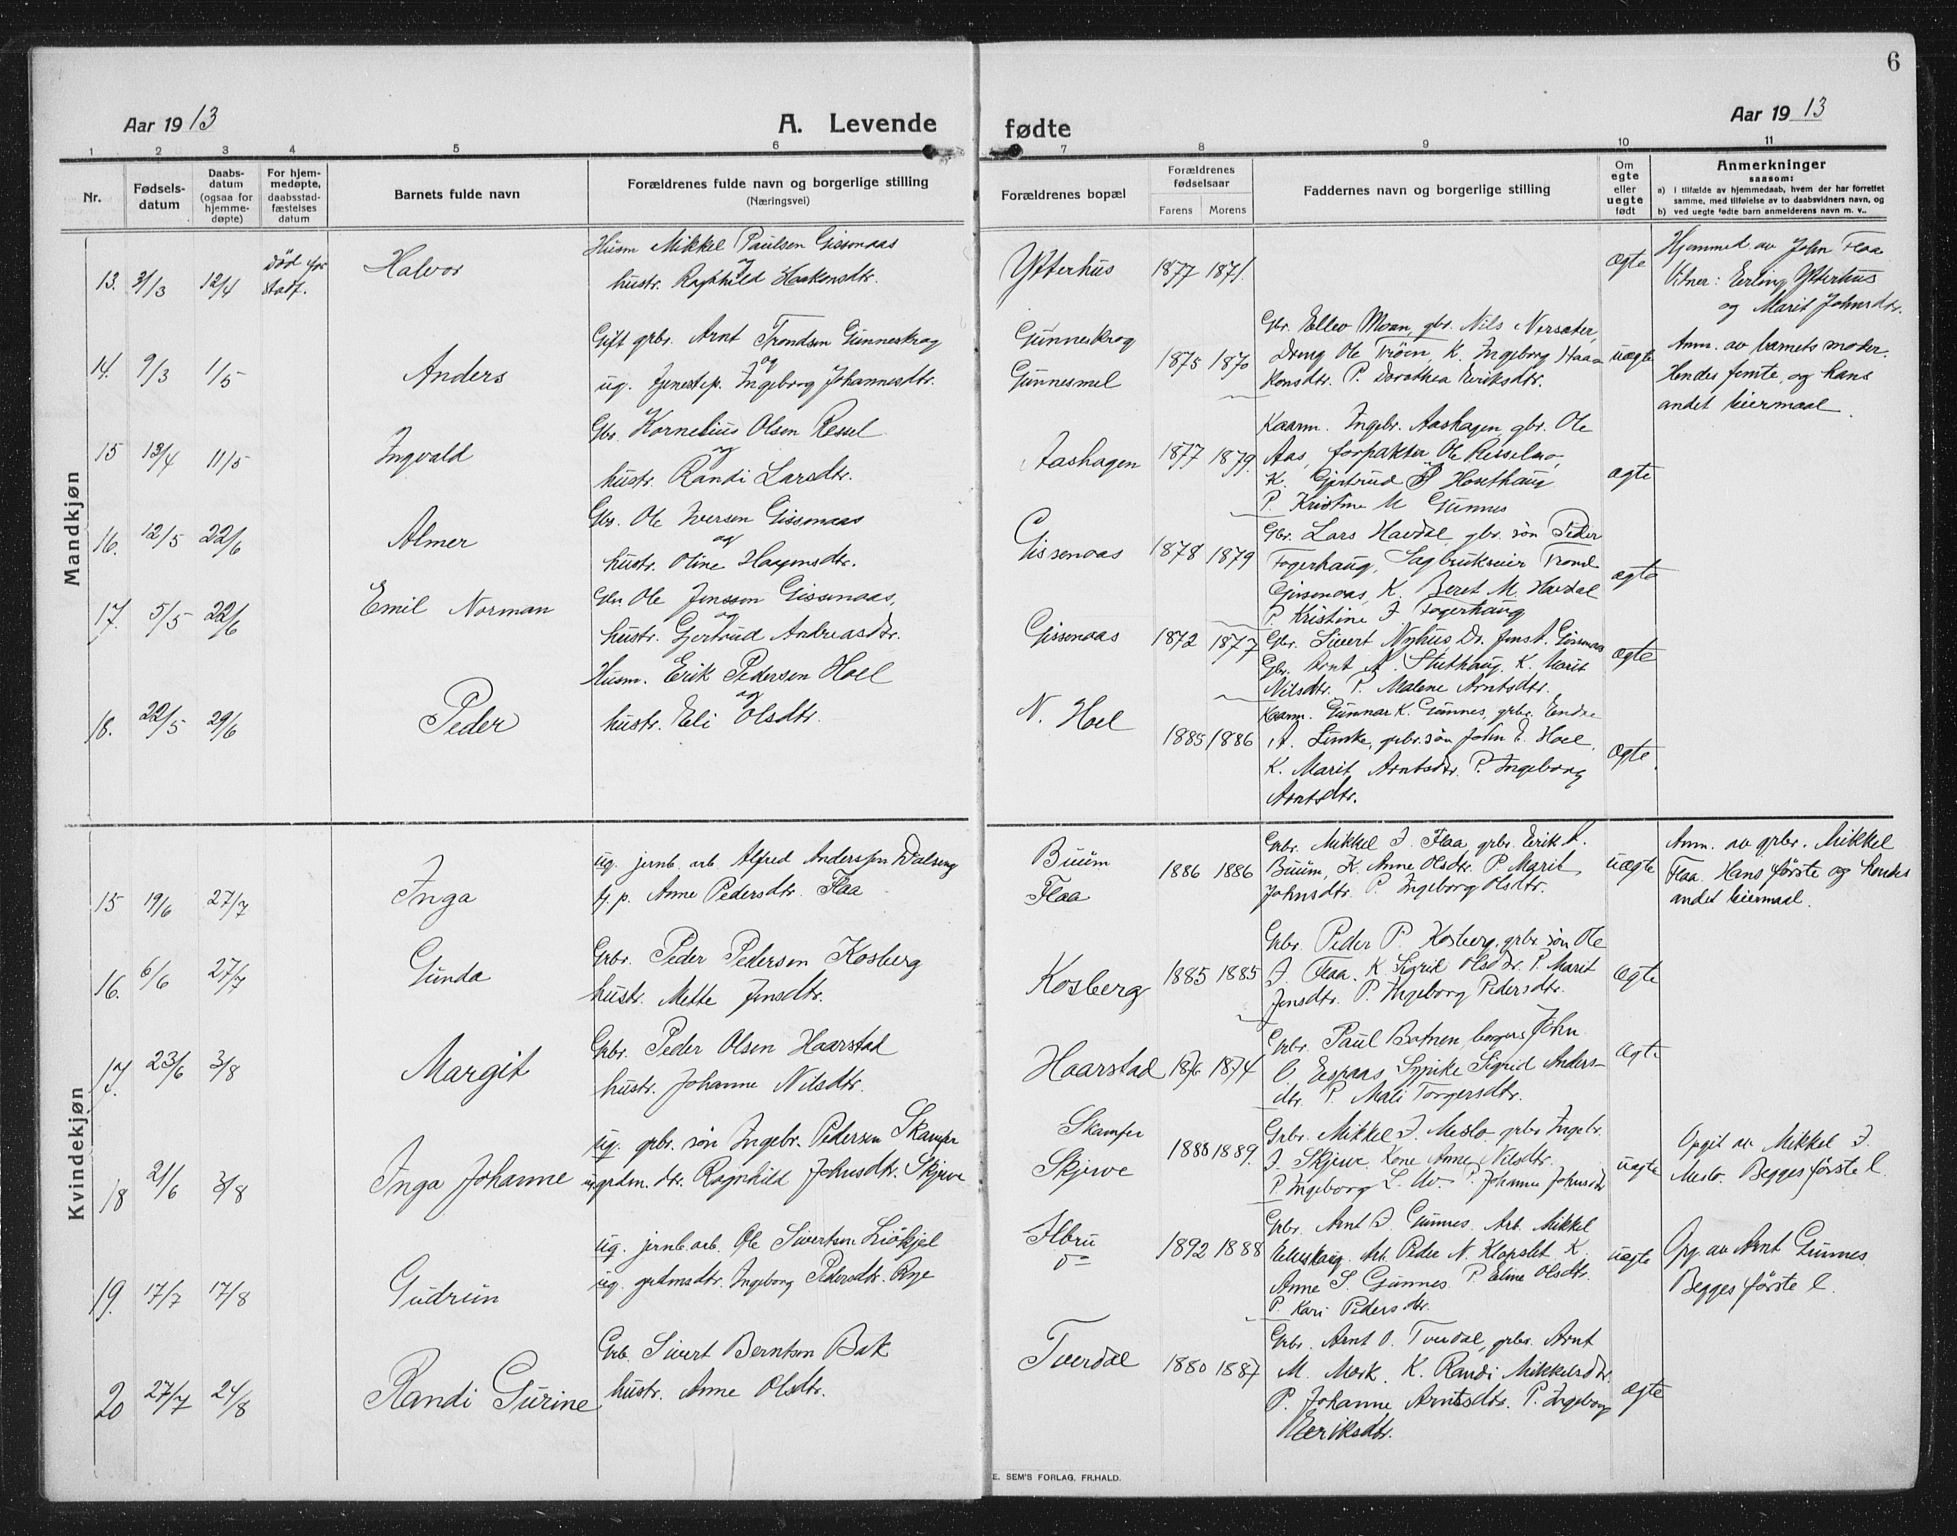 6
Aar 1913
A. Levende fødte
Aar 1913
1 2 3 4 5 6 7 8 9 10 11
Nr.
Fødsels-
datum
Daabs-
datum
(ogsaa for
hjemme-
døpte)
For hjem-
medøpte,
daabsstad-
fæstelses
datum
Barnets fulde navn
Forældrenes fulde navn og borgerlige stilling
(Næringsvei)
Forældrenes bopæl
Forældrenes
fødselsaar
Farens Morens
Faddernes navn og borgerlige stilling
Om
egte
eller
uegte
født
Anmerkninger
saasom:
a) i tilfælde av hjemmedaab, hvem der har forrettet
samme, med tilføielse av to daabsvidners navn, og
b) ved uegte fødte barn anmelderens navn m. v..
Mandkjøn
13. 3/3 12/4 død før stadf. Halvor
Husm Mikkel Paulsen Gissenaas
og
hustr. Ragnhild Haakonsdtr.
Ytterhus 1877 1871.
ægte
Hjemmed. av John Flaa
Vitner: Erling Ytterhus
og Marit Johnsdtr.
14. 9/3 1/5 Anders
Gift grbr. Arnt Trondsen Gunneskrog
og
ug. tjenestep. Ingeborg Johannesdtr.
Gunneskrog
Gunnesmel
1875 1870
Gbr. Ellev Moan, gbr. Nils Nersæter,
Dreng Ole Trøen, K. Ingeborg Haa
konsdtr. P. Dorothea Eriksdtr.
uægte
Anm. av barnets moder.
Hendes femte, og hans
andet leiermaal.
15 13/4 11/5 Ingvald
Gbr. Kornelius Olsen Ressel
og
hustr. Randi Larsdtr.
Aashagen 1877 1879.
Kaarm. Ingebr. Aashagen gbr. Ole
Aas, forpakter Ole Resselmo,
K. Gjertrud P. Hosethaug
P. Kristine M Gunnes
ægte
16. 12/5 22/6 Almer
Gbr. Ole Iversen Gissenaas
og
hustr. Oline Haagensdtr.
Gissenaas 1878 1879
Gbr. Lars Havdal, gbr. søn Peder
Fogerhaug, Sagbrukseier Trond
Gissenaas, K. Beret M. Havdal
P. Kristine J Fogerhaug
ægte
17. 5/5 22/6 Emil Norman
Gbr. Ole Jenssen Gissenaas,
og
hustr. Gjertrud Andreasdtr.
Gissenaas 1872 1877
Gbr. Sivert Nyhus, Dr. Jens A. Gissenaas
Gbr. Arnt A. Stuthaug, K. Marit
Nilsdtr. P. Malene Arntsdtr.
ægte
18. 22/5 29/6 Peder
Husm. Erik Pedersen Hoel
og
hustr. Eli Olsdtr.
N. Hoel 1885 1886
Kaarm. Gunnar K. Gunnes, grbr. Endre
A. Limke, grbr. søn John E. Hoel,
K. Marit Arntsdtr. P. Ingeborg
Arntsdtr.
ægte.
Kvindekjøn
15 19/6 27/7 Inga
ug. jernb. arb Alfred Anderssen Dalseng
t.p. Anne Pedersdtr. Flaa
Buum
Flaa
1886 1886
Grbr. Mikkel J. Flaa, grbr. Erik A.
Buum, K. Anne Olsdtr. P. Marit
Johnsdtr. P. Ingeborg Olsdtr.
uægte
Anm. av grbr. Mikkel
Flaa. Hans første og hendes
andet leiermaal.
16. 6/6 27/7 Gunda
Grbr. Peder Pedersen Kosberg
hustr. Mette Jensdtr.
Kosberg 1885 1885
Grbr. Peder P. Kosberg, grbr. søn Ole
J. Flaa. K. Sigrid Olsdtr. P. Marit
Jensdtr. P. Ingeborg Pedersdtr.
ægte
17. 23/6 3/8 Margit
Grbr. Peder Olsen Haarstad
hustr. Johanne Nilsdtr.
Haarstad 1876 1874
Grbr. Paul Botnen, borgers John
O. Eggaas Synike Sigrid Anders-
dtr. P. Mali Torgersdtr.
ægte
18 21/6 3/8 Inga Johanne
ug. grbr. søn Ingebr. Pedersen Skamfer
ug. grdm. dtr. Ragnhild Johnsdtr. Skjerve
Skamfer
Skjerve
1888 1889.
Grbr. Mikkel J. Meslo, grbr Ingebr.
J. Skjerve. Kone Anne Nilsdtr.
P. Ingeborg L. Mo. P. Johanne Johnsdtr
uægte
Opgit av Mikkel J.
Meslo. Begges første l.
19. 17/7 17/8 Gudrun
ug. jernb. arb. Ole Sivertsen Liökjel
ug. grdmsdtr. Ingeborg Pedersdtr. Rye
Ilbru
do
1892 1888
Grbr. Arnt J. Gunnes. Arb. Mikkel
Arb. Peder N. Klopslet K.
Anne S. Gunnes. P. Eline Olsdtr.
P. Kari Pedersdtr.
uægte
Opg. av Arnt Gunnes.
Begges første l.
20 27/7 24/8 Randi Gurine
Grb. Sivert Berntsen Bak
hustr. Anne Olsdtr.
Tverdal 1880 1887
Grbr. Arnt O. Tverdal, grbr. Arnt
M. Mork. K. Randi Mikkelsdtr.
P. Johanne Arntsdtr. P. Ingeborg
Eriksdtr.
ægte
E. SEM'S FORLAG, FR.HALD.